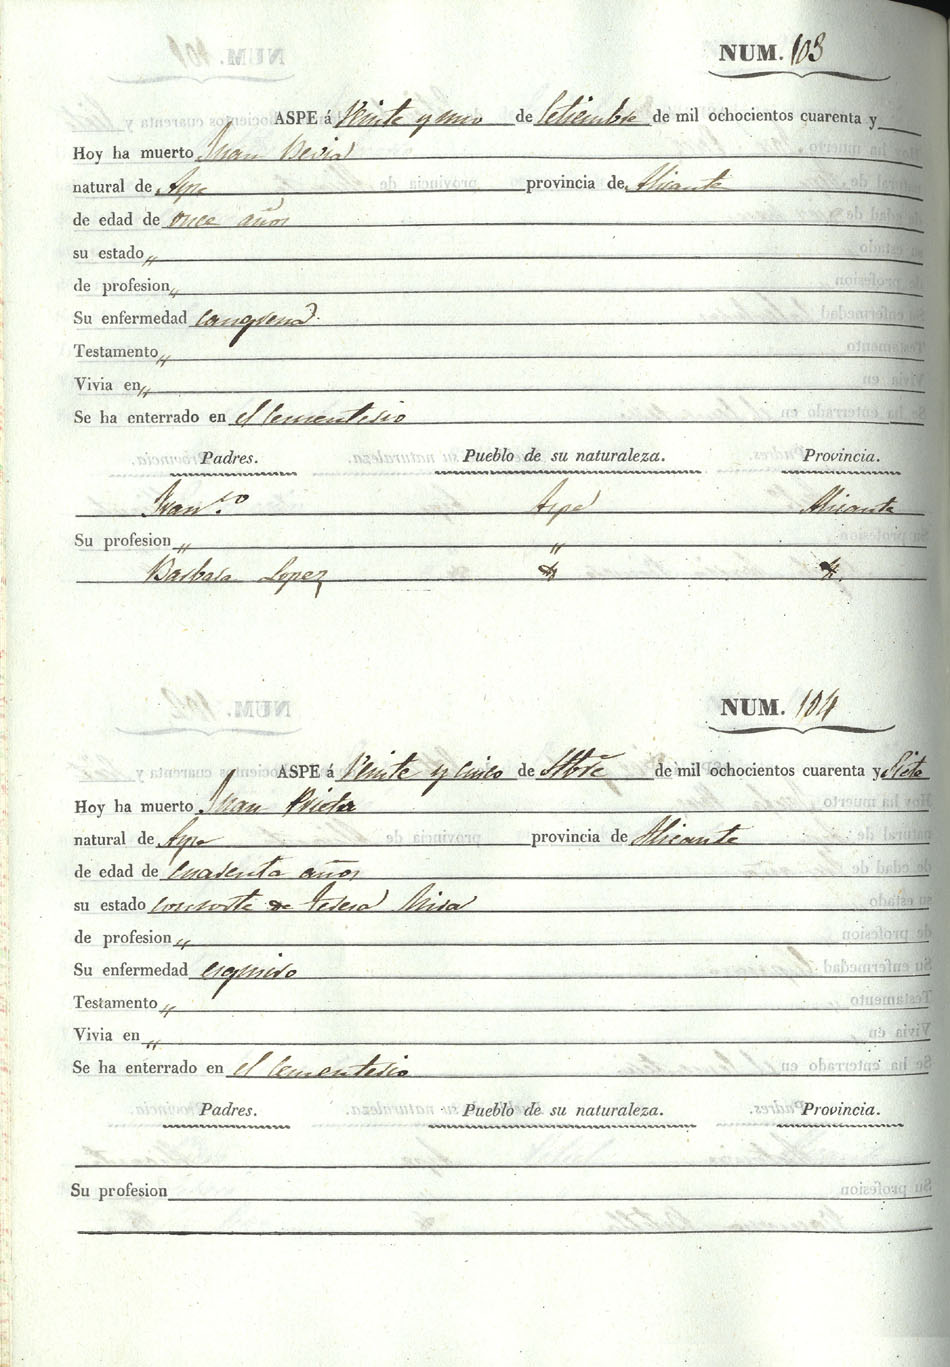 NUM. 103
ASPE á Veinte y uno de Setiembre de mil ochocientos cuarenta y
Hoy ha muerto Juan
natural de Aspe provincia de Alicante
de edad de once años
su estado „
de profesion „
Su enfermedad cangrena
Testamento „
Vivia en „
Se ha enterrado en el Cementerio
Padres. Pueblo de su naturaleza. Provincia.
Fran.co Aspe Alicante
Su profesion „ „
Barbara Lopez
NUM. 104
ASPE á Veinte y cinco de Stbre de mil ochocientos cuarenta y Siete
Hoy ha muerto Juan
natural de Aspe provincia de Alicante
de edad de cuarenta años
su estado consorte de Teresa Mira
de profesion „
Su enfermedad esquirro
Testamento „
Vivia en „
Se ha enterrado en el Cementerio
Padres. Pueblo de su naturaleza. Provincia.
Su profesion